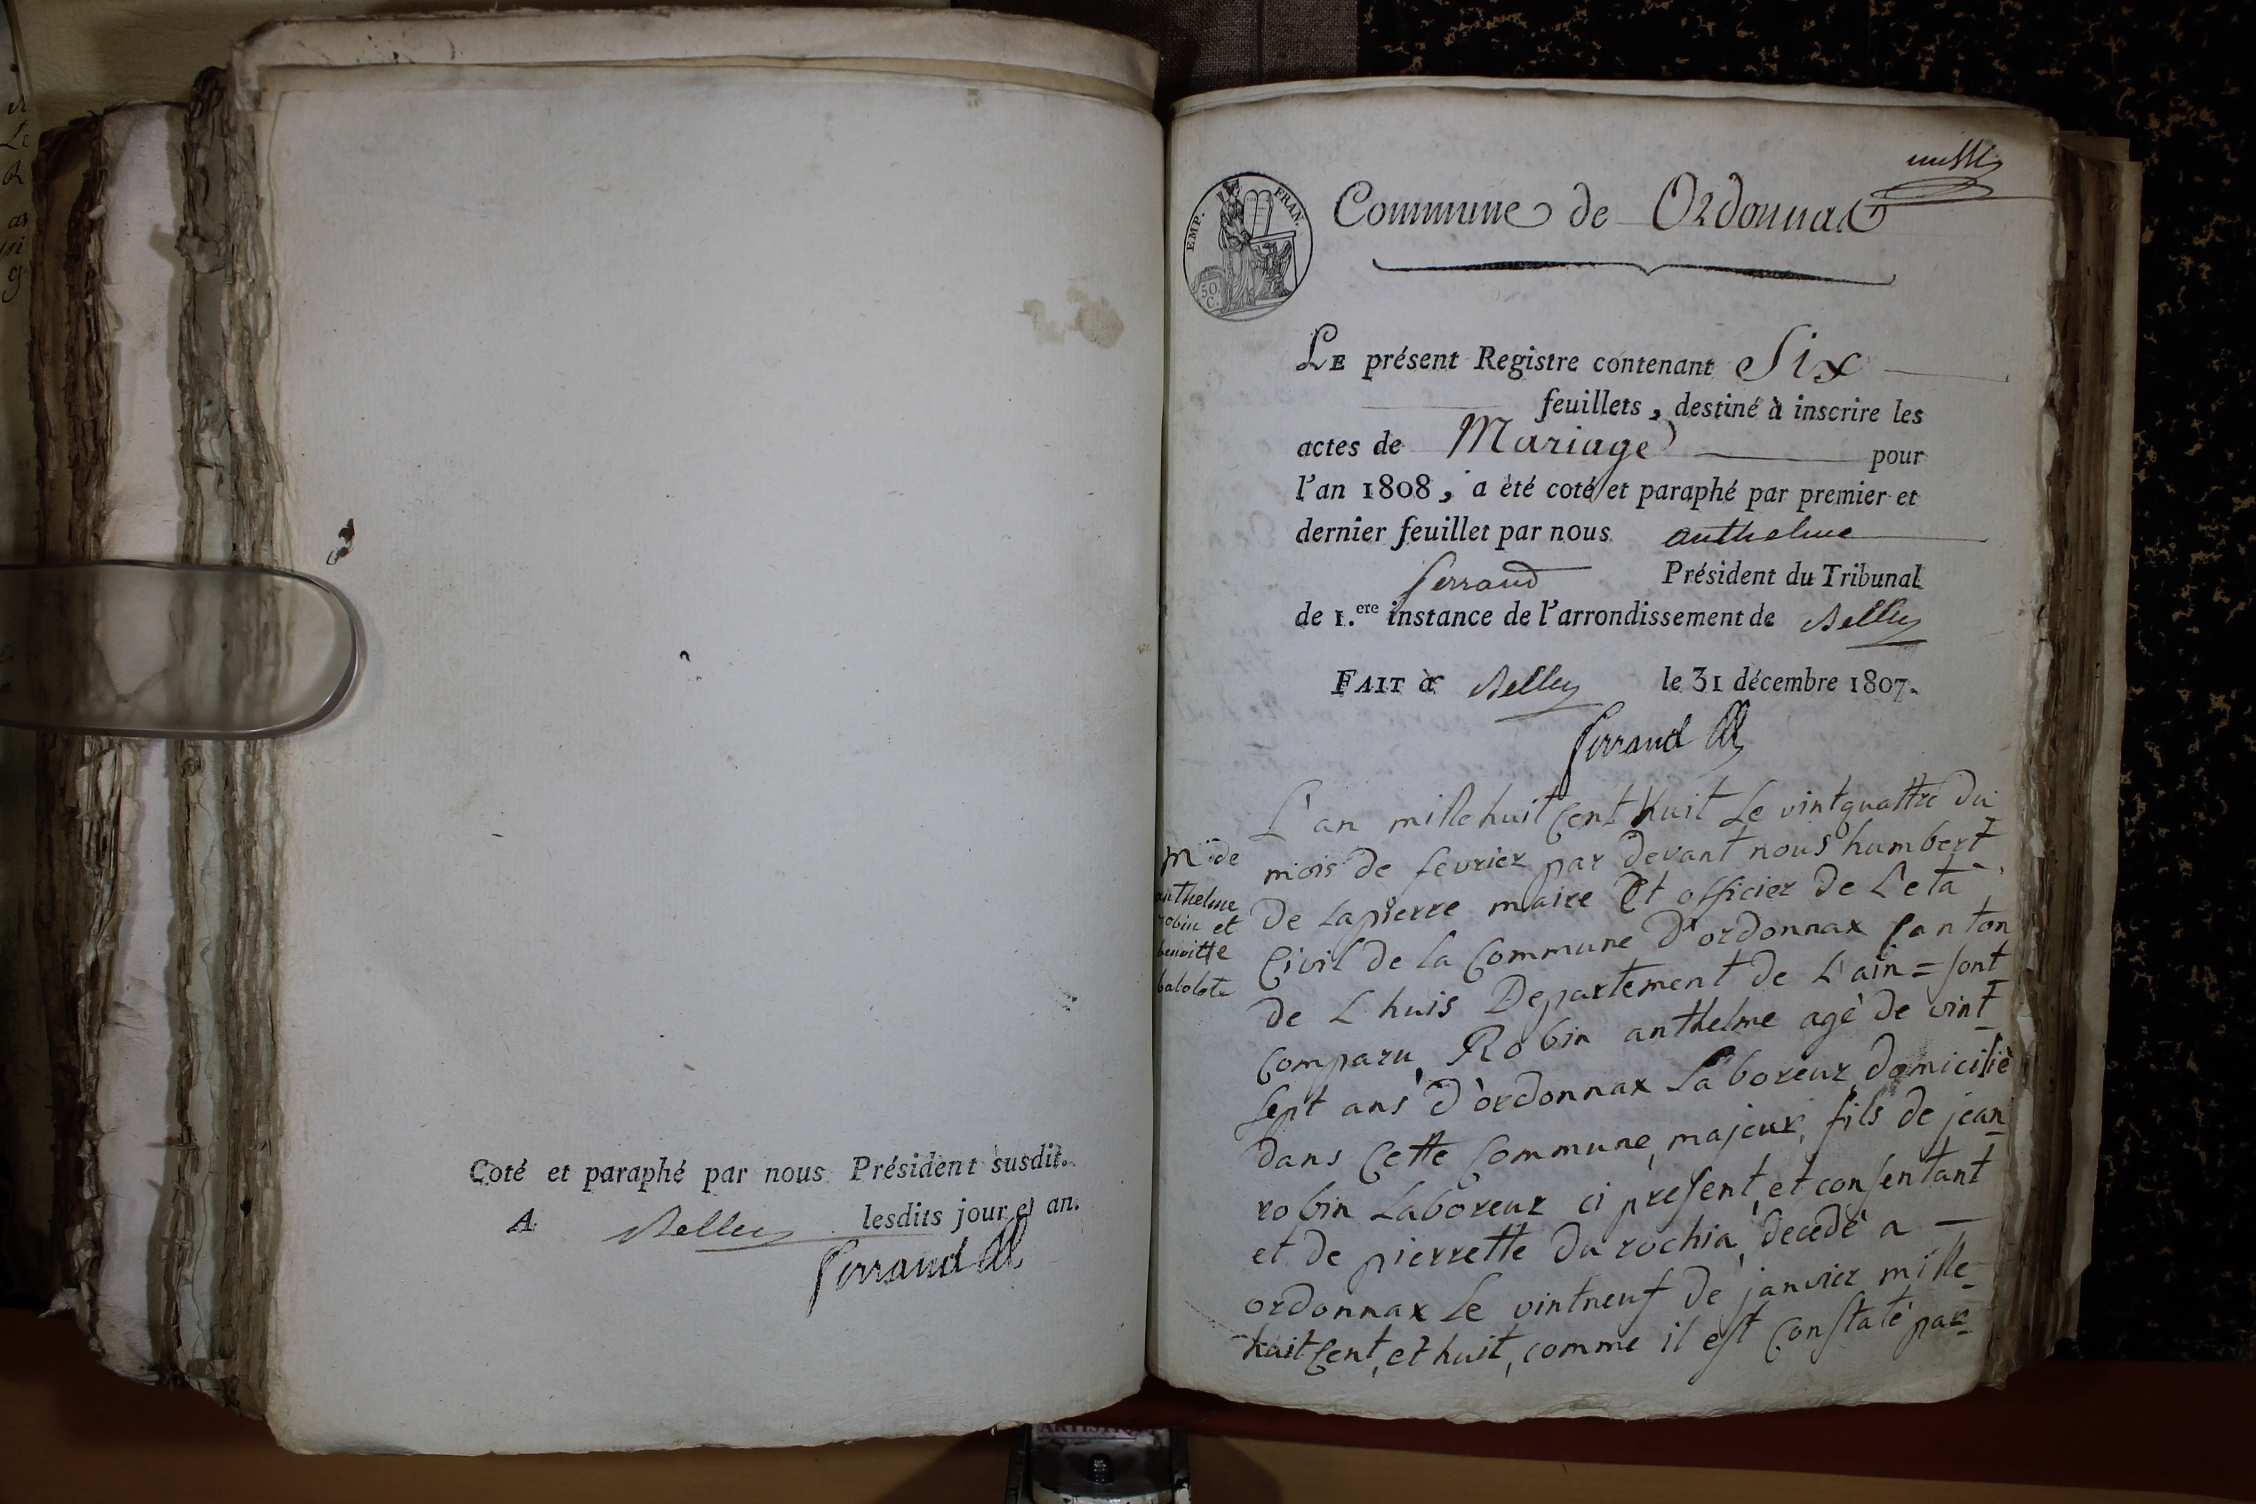 Coté et paraphé par nous Président susdit.
A Belley lesdits jour et an.
Perrand
EMP. FRAN.
50 C.
Commune de Ordonnat
LE présent Registre contenant Six
feuillets, destiné à inscrire les
actes de Mariage pour
l'an 1808, a èté coté et paraphé par premier et
dernier feuillet par nous anthelme
Perrand Président du Tribunal
de 1.ere instance de l'arrondissement de Belley
FAIT à Belley le 31 décembre 1807.
Perrand
m de
anthelme
robin et
benoitte
babolote
L'an mille huit Cent huit Le vintquattre du
mois de fevrier par devant nous humbert
De Lapierre maire Et officier de L'eta
Civil de la Commune D'ordonnax Canton
de L huis Departement de L'ain = sont
Comparu Robin anthelme agè de vint
sept ans D'ordonnax Laboreur domiciliè
dans Cette Commune majeur, fils de jean
robin Laboreur ci present, et consentant
et de pierrette Du rochia, decedè a —
ordonnax Le vintneuf De janvier mille
huit Cent, et huit, comme il est Constatè par